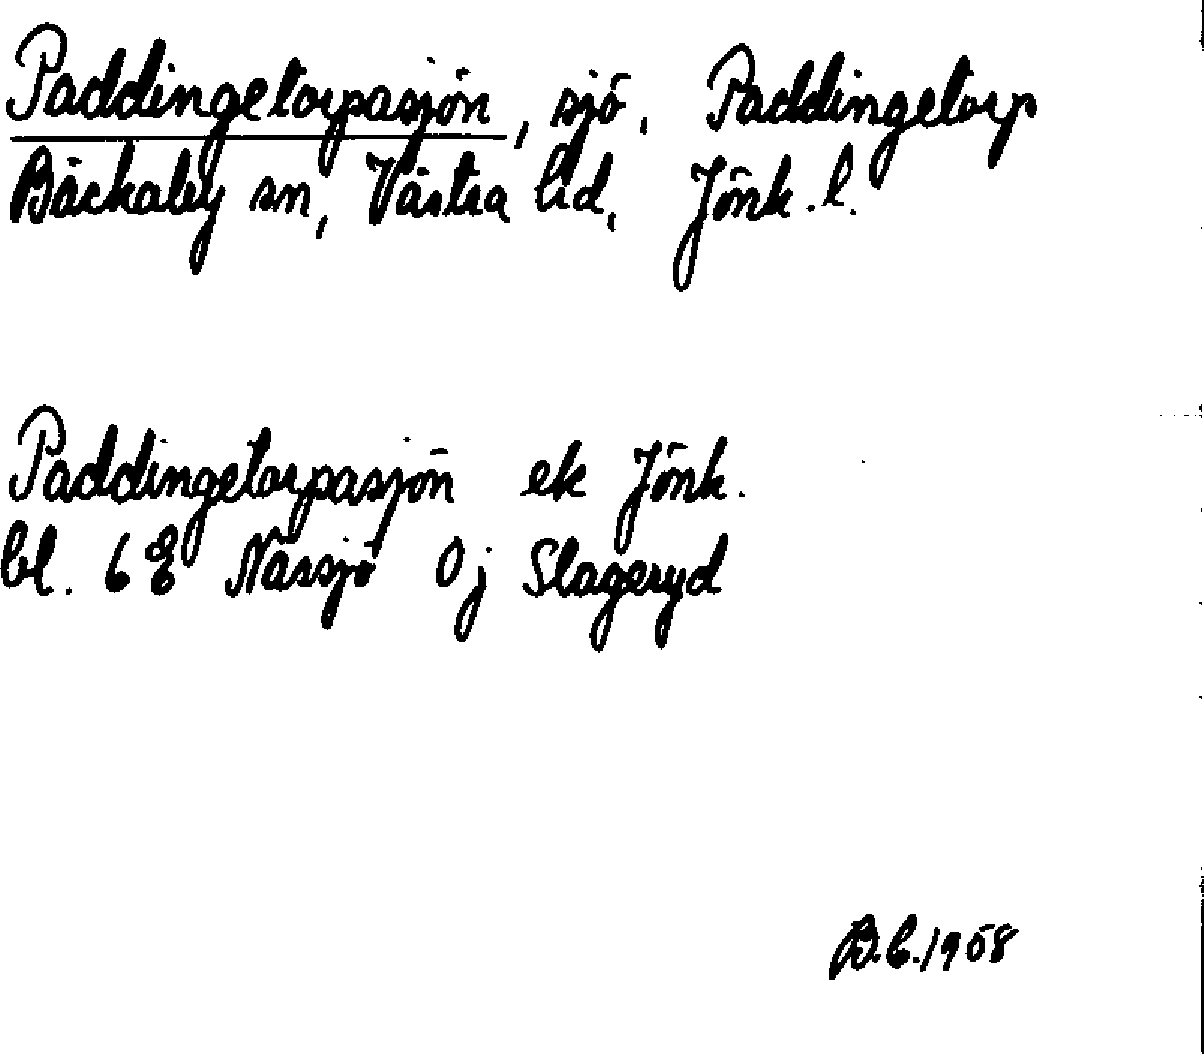 Paddingetorpasjön, sjö, Paddingetorp
Bäckaby sn, Västra hd, Jönk. l.
Paddingetorpasjön ek Jönk.
bl. 6 E Nässjö 0 j Slageryd
B.C. 1958